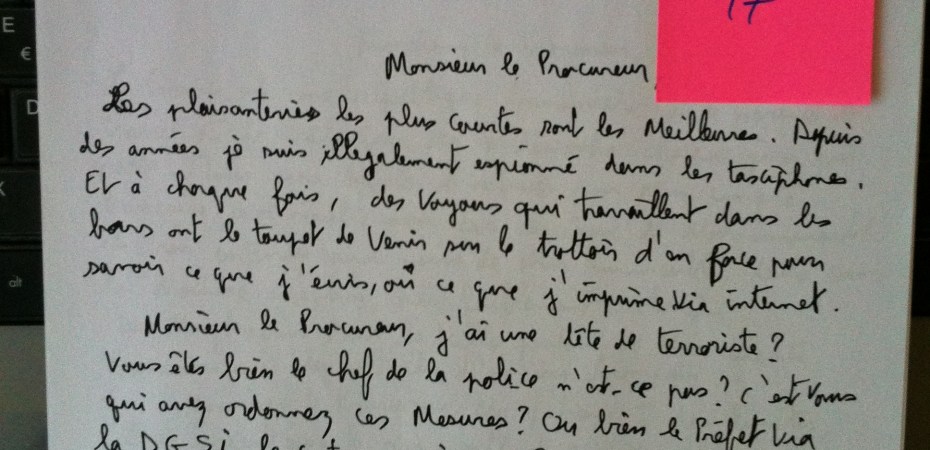 E
€
D
alt
17
Monsieur le Procureur,
Les plaisanteries les plus courtes sont les Meilleures. Depuis
des années je suis illegalement espionné dans les taxiphones.
Et à chaque fois, des Voyous qui travaillent dans les
bars ont le toupet de Venir sur le trottoir d'en face pour
savoir ce que j'écris, où ce que j'imprime via internet.
Monsieur le Procureur, j'ai une tête de terroriste?
Vous êtes bien le chef de la police n'est-ce pas? C'est Vous
qui avez ordonnez ces Mesures? Ou bien le Préfet Via
la DGSi